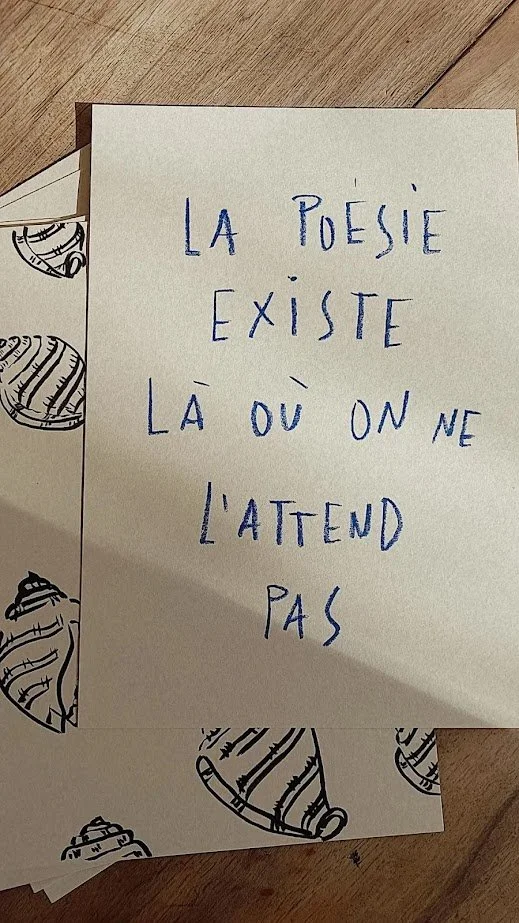 LA POÉSIE
EXISTE
LÀ OÙ ON NE
L'ATTEND
PAS